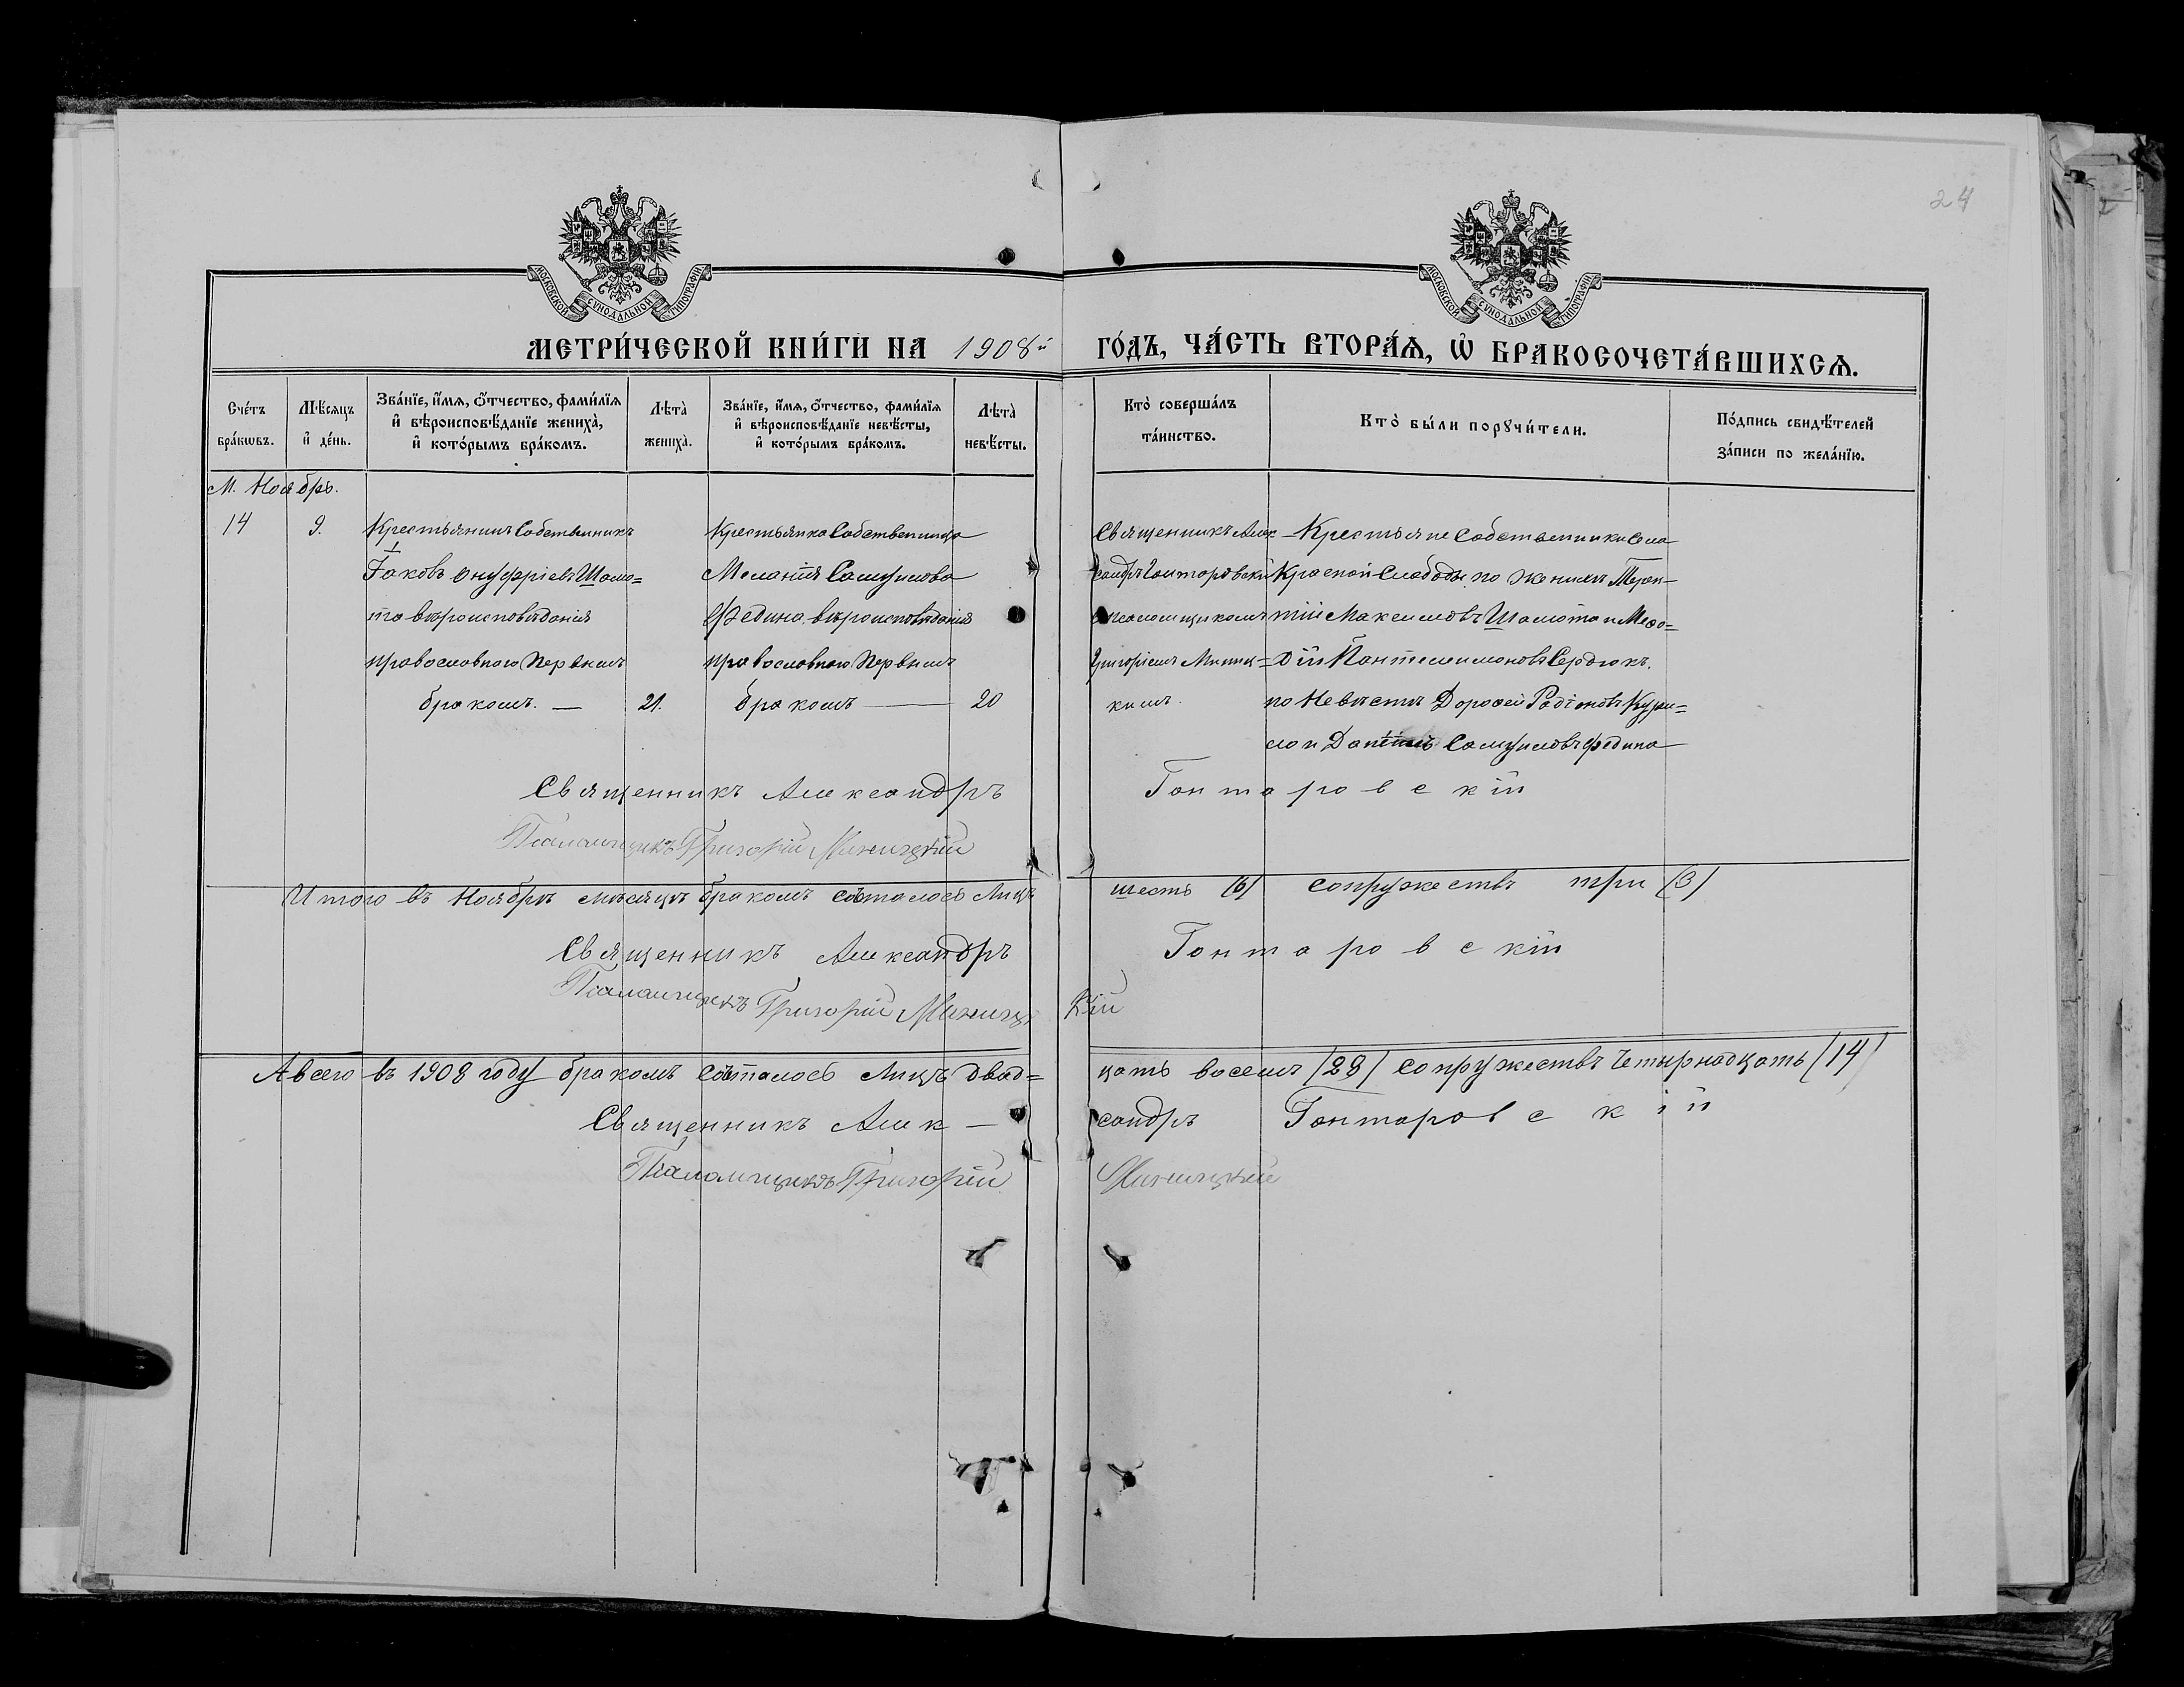 24
МОСКОВСКОЙ СѴНОДАЛЬНОЙ ТИПОГРАФІИ
МОСКОВСКОЙ СѴНОДАЛЬНОЙ ТИПОГРАФІИ
МЕТРИ́ЧЕСКОЙ КНИ́ГИ НА 1908й ГО́ДЪ, ЧА́СТЬ ВТОРА́Ѧ, Ѽ БРАКОСОЧЕТА́ВШИХСѦ.
Сче́тъ бра́кѡвъ.
Мѣ́сяцъ и҆ де́нь.
Зва́нїе, и҆́мѧ, ѻ҆́тчество, фами́лїѧ и҆ вѣроисповѣ́данїе жениха̀, и҆ кото́рымъ бра́комъ.
Лѣта̀ жениха̀.
Зва́нїе, и҆́мѧ, ѻ҆́тчество, фами́лїѧ и҆ вѣроисповѣ́данїе невѣ́сты, и҆ кото́рымъ бра́комъ.
Лѣта̀ невѣ́сты.
Кто̀ соверша́лъ та́инство.
Кто̀ бы́ли порꙋчи́тели.
По́дпись свидѣ́телей за́писи по жела́нїю.
М. Ноябрь.
14
9.
Крестьянинъ Собственникъ
Іаковъ Онуфріевъ Шамо=
та вѣроисповѣданія
православнаго Первымъ
бракомъ. —
21.
Крестьянка Собственница
Меланія Самуилова
Федина вѣроисповѣданія
православнаго Первымъ
бракомъ —
20
Священникъ Алек-
сандръ Гонтаровскій
съ псаломщикомъ
Григоріемъ Миниц=
кимъ.
Крестьяне Собственники Села
Красной Слободы по Женихѣ Терен-
тій Максимовъ Шамота и Меѳо=
дій Пантелеимоновъ Сердюкъ.
по Невѣстѣ Дороѳей Радіоновъ
ло и Даніилъ Самуиловъ Федина
Священникъ Александръ Гонтаровскій
Псаломщикъ Григорій Миницкій
Итого въ Ноябрѣ мѣсяцѣ бракомъ сочталось Лицъ шесть (6) сопружествъ три (3)
Священникъ Александръ Гонтаровскій
Псаломщикъ Григорій Миницкій
А всего въ 1908 году бракомъ сочталось Лицъ двад=цать восемь (28) сопружествъ четырнадцать (14)
Священникъ Алек-сандръ Гонтаровскій
Псаломщикъ Григорій Миницкій